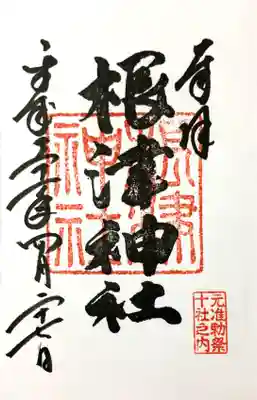 奉拝
根津神社
根津神社
平成 年四月二十七日
元准勅祭
十社之内